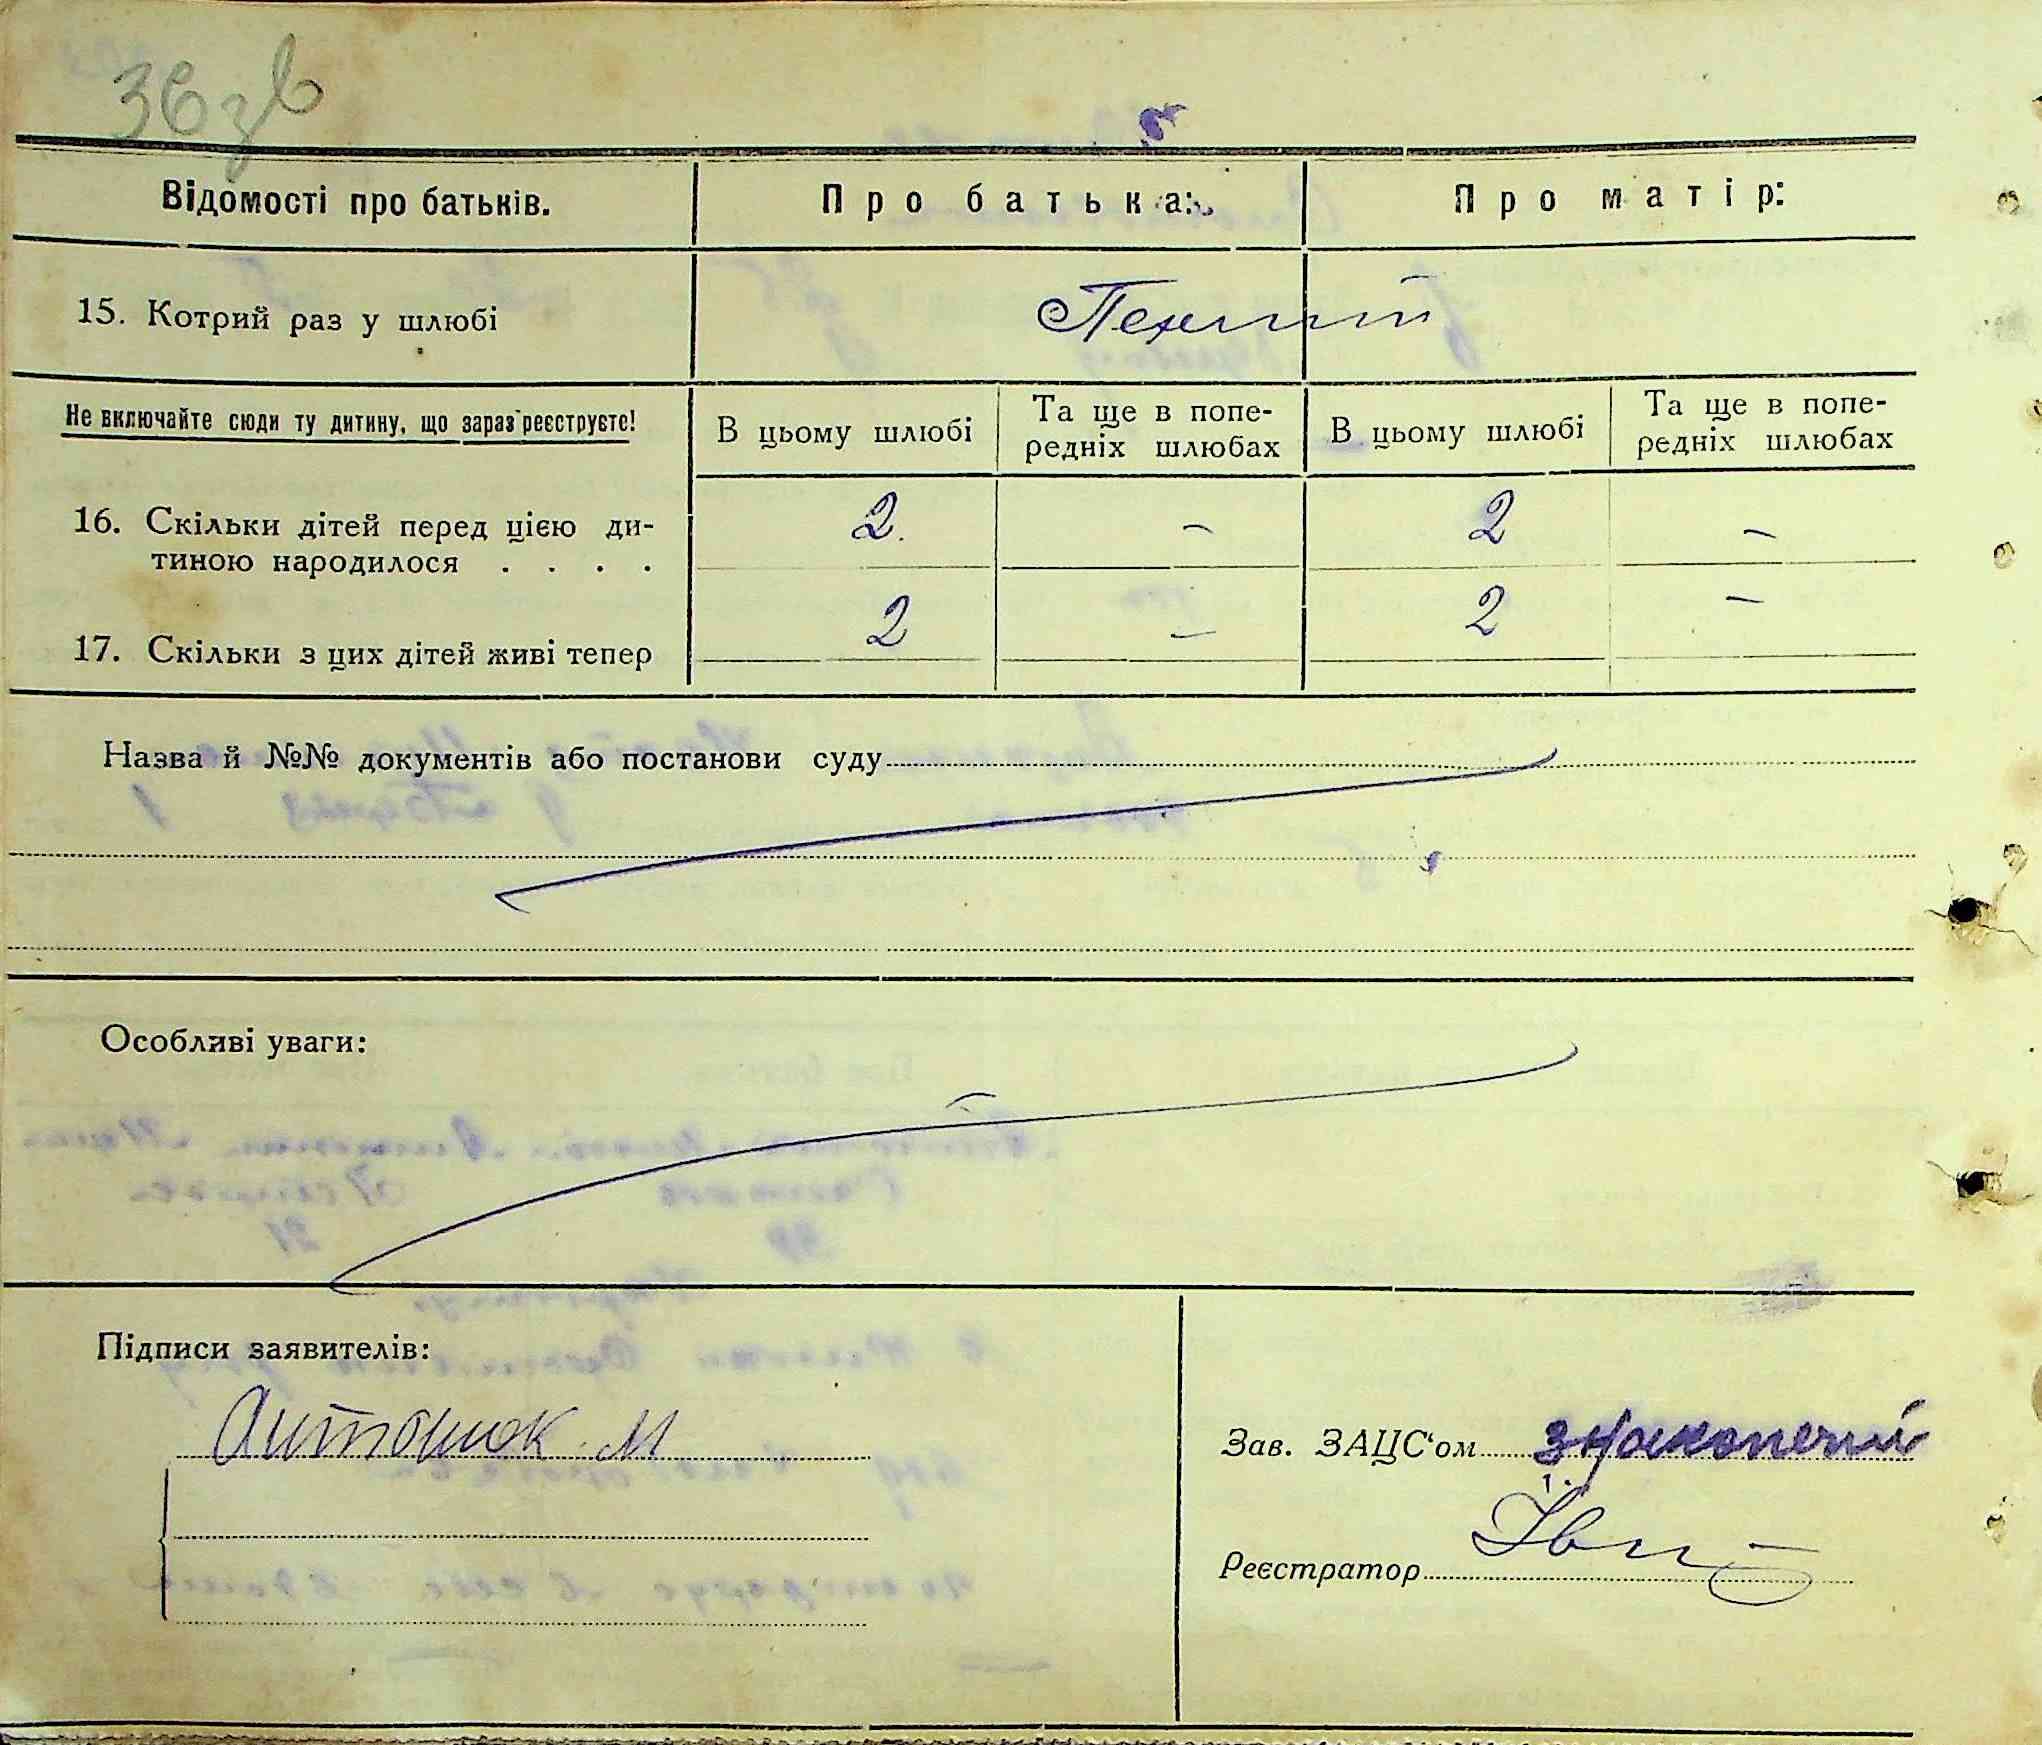 36зв
Відомості про батьків.
Про батька:
Про матір:
15. Котрий раз у шлюбі
Не включайте сюди ту дитину, що зараз реєструєте!
В цьому шлюбі
Та ще в попе-
редніх шлюбах
В цьому шлюбі
Та ще в попе-
редніх шлюбах
16. Скільки дітей перед цією ди-
тиною народилося . . . .
2. – 2 –
17. Скільки з цих дітей живі тепер
2 – 2 –
Назва й №№ документів або постанови суду
Особливі уваги:
Підписи заявителів:
Антонюк М
Зав. ЗАЦС'ом
Реєстратор